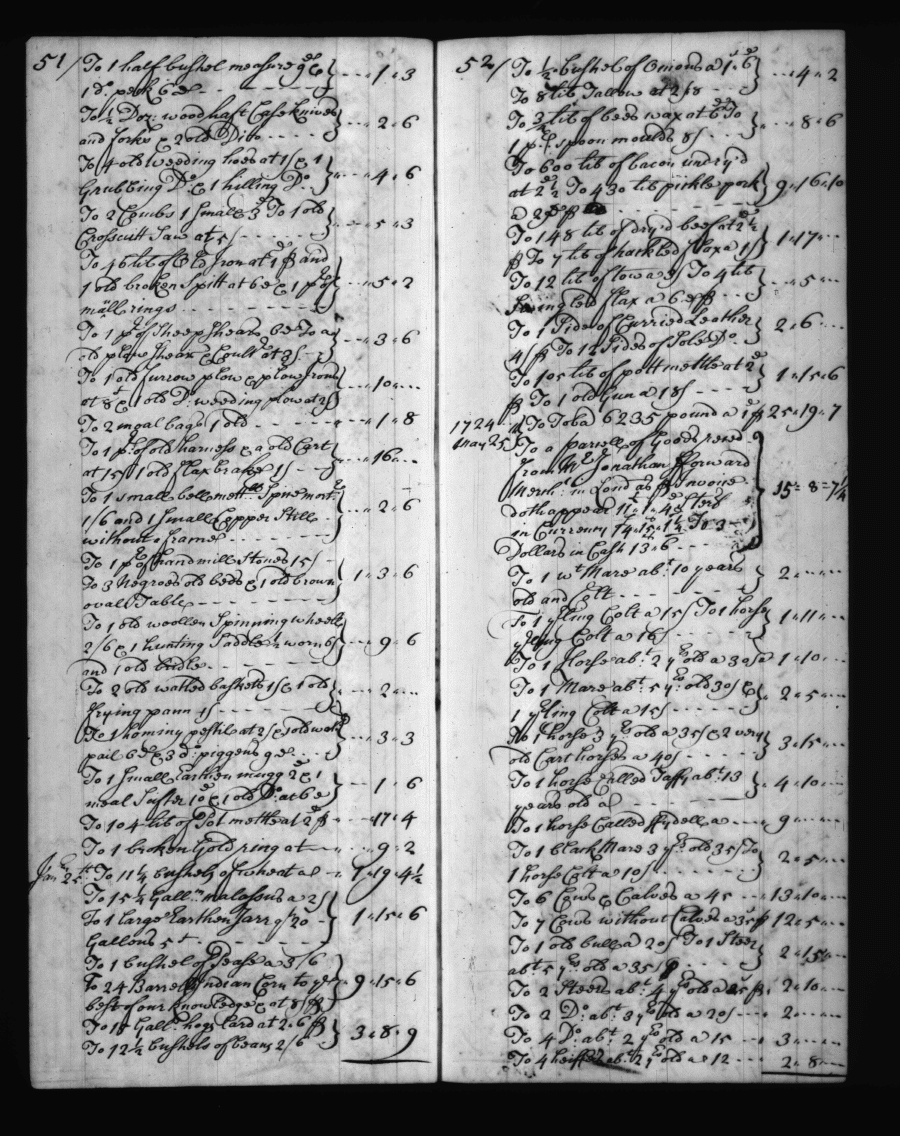 51/ To 1 half bushel measure 9d &
1 Do. peck 6d } 1 " 3
To ½ Doz: woodhaft Case knives
and forks & 2 old Ditto } 2 " 6
To 4 old weeding hoes at 1/ & 1
Grubbing Do. & 1 hilling Do. } 4 " 6
To 2 Combs 1 Small 3d To 1 old
Crosscutt Saw at 5/ } 5 " 3
To 46 lib of Old Iron at 1d ⅌ and
1 old broken Spitt at 6d & 1 pr of
maul rings } 5 " 2
To 1 pr of Sheep Shears 6d To a
old plow Shear & Coult at 3/ } 3 " 6
To 1 old furrow plow & plow Irons
at 8/ & 1 old Do. weeding plow at 2/ } 10 "
To 2 meal bags 1 old 1 " 8
To 1 pr of old harness & a old Cart
at 15/ 1 old flax brake 1/ } 16 "
To 1 small bellmettle Spice mort.
1/6 and 1 Small Copper Still
without a frame } 2 " 6
To 1 pr of handmill Stones 15/
To 3 Negroes old beds & 1 old brown
ovall Table } 1 " 3 " 6
To 1 old woollen Spinning wheell
2/6 & 1 hunting Saddle ½ worn 6/
and 1 old bridle } 9 " 6
To 2 old watled baskets 1/ & 1 old
frying pann 1/ } 2 "
To 1 hominy pestil at 2/ & 1 old
pail 6d & 3 do. piggens 9d } 3 " 3
To 1 Small Earthen mugg 2d & 1
meal Sifter 10d & 1 old Do. at 6d } 1 " 6
To 104 lib of Pot mettle at 2d ⅌ 17 " 4
To 1 broken Gold ring at 9 " 2
Jan. 25th To 11¼ bushells of wheat a 1 " 19 " 4½
To 15¼ Galls. malossus a 2/
To 1 Large Earthen Jarr qt. 20
Gallons 5/ } 1 " 15 " 6
To 1 bushel of Pease a 3/6
To 24 Barrells Indian Corn to ye
best of our knowledge & at 8/ ⅌ } 9 " 15 " 6
To Galls. hogs Lard at 2 " 6 ⅌
To 12½ bushels of beans 2/6 } 3 " 8 " 9
52/ To ½ bushel of Onions a 1 " 6
To 8 lib Tallow at } 4 " 2
To lib of bees wax at To
1 pr. spoon moulds 8/ } 8 " 6
To 600 lib of bacon undry'd
at 2½ To 430 lib pickle pork
a 2d ⅌ } 9 " 16 " 10
To 148 lib of dry'd beef at 2½
⅌ To 7 lib of hackled flax a 1/ } 1 " 17 "
To 12 lib of tow a To 4 lib
flax a 6d ⅌ } 5 "
To 1 Side of Curried Leather
4/ ⅌ To 12 Sides of Sole Do. } 2 " 6
To 105 lib of pott mettle at 2d
⅌ To 1 old Gun a 18/ } 1 " 15 " 6
To Toba. 6235 pound a 1d ⅌ 25 " 19 " 7
1724
May 25 To a parcell of Goods reced
from Mr. Jonathan Forward
Mercht. in Lond as ⅌ Invoice
doth appear 11 " 1 " 4 Sterl
in Currency 14 " 15 " 1¼ To 3
Dollars in Cash 13 " 6 } 15 " 8 " 7¼
To 1 wt Mare abt. 10 years
old and Colt } 2 "
To 1 yling Colt a 15/ To 1 horse
yling Colt a 16/ } 1 " 11 "
To 1 Horse abt. 2 yrs old a 30/ 1 " 10 "
To 1 Mare abt. 5 yrs. old 30/ &
1 yling Colt a 15/ } 2 " 5 "
To 1 horse 3 yrs old a 35/ & 2 very
old Cart horses a 40/ } 3 " 15 "
To 1 horse Called Taffy abt. 13
years old a } 4 " 10 "
To 1 horse Called ffydell a 9 "
To 1 black Mare 3 yrs old 35/ To
1 horse Colt a 10/ } 2 " 5 "
To 6 Cows & Calves a 45 13 " 10 "
To 7 Cows without Calves a 35/ ⅌ 12 " 5 "
To 1 old bull a 20/ To 1 Steer
abt 5 yrs old a 35/ } 2 " 15 "
To 2 Steers abt. 4 yrs old a 25/ ⅌ 2 " 10 "
To 2 Do. abt. 3 yrs old a 20/ 2 "
To 4 Do. abt. 2 yrs old a 15 3 "
To 4 heiffers abt. 2 yrs old a 12 2 " 8 "